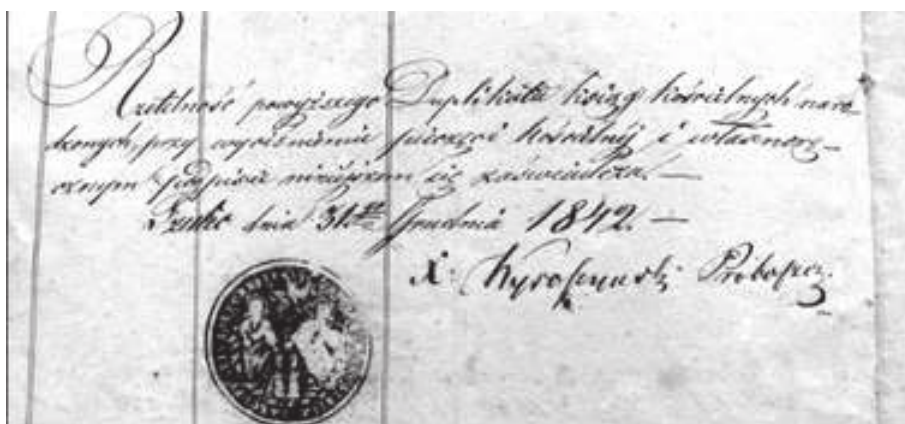 Rzetelność powyższego Duplikatu ksiąg kościelnych naro-
dzonych, przy wyciśnieniu pieczęci kościelnéj i własnorę-
cznym podpisie niniejszem się zaświadcza. —
dnia 31ᵍᵒ Grudnia 1842. —
X: Proboszcz.